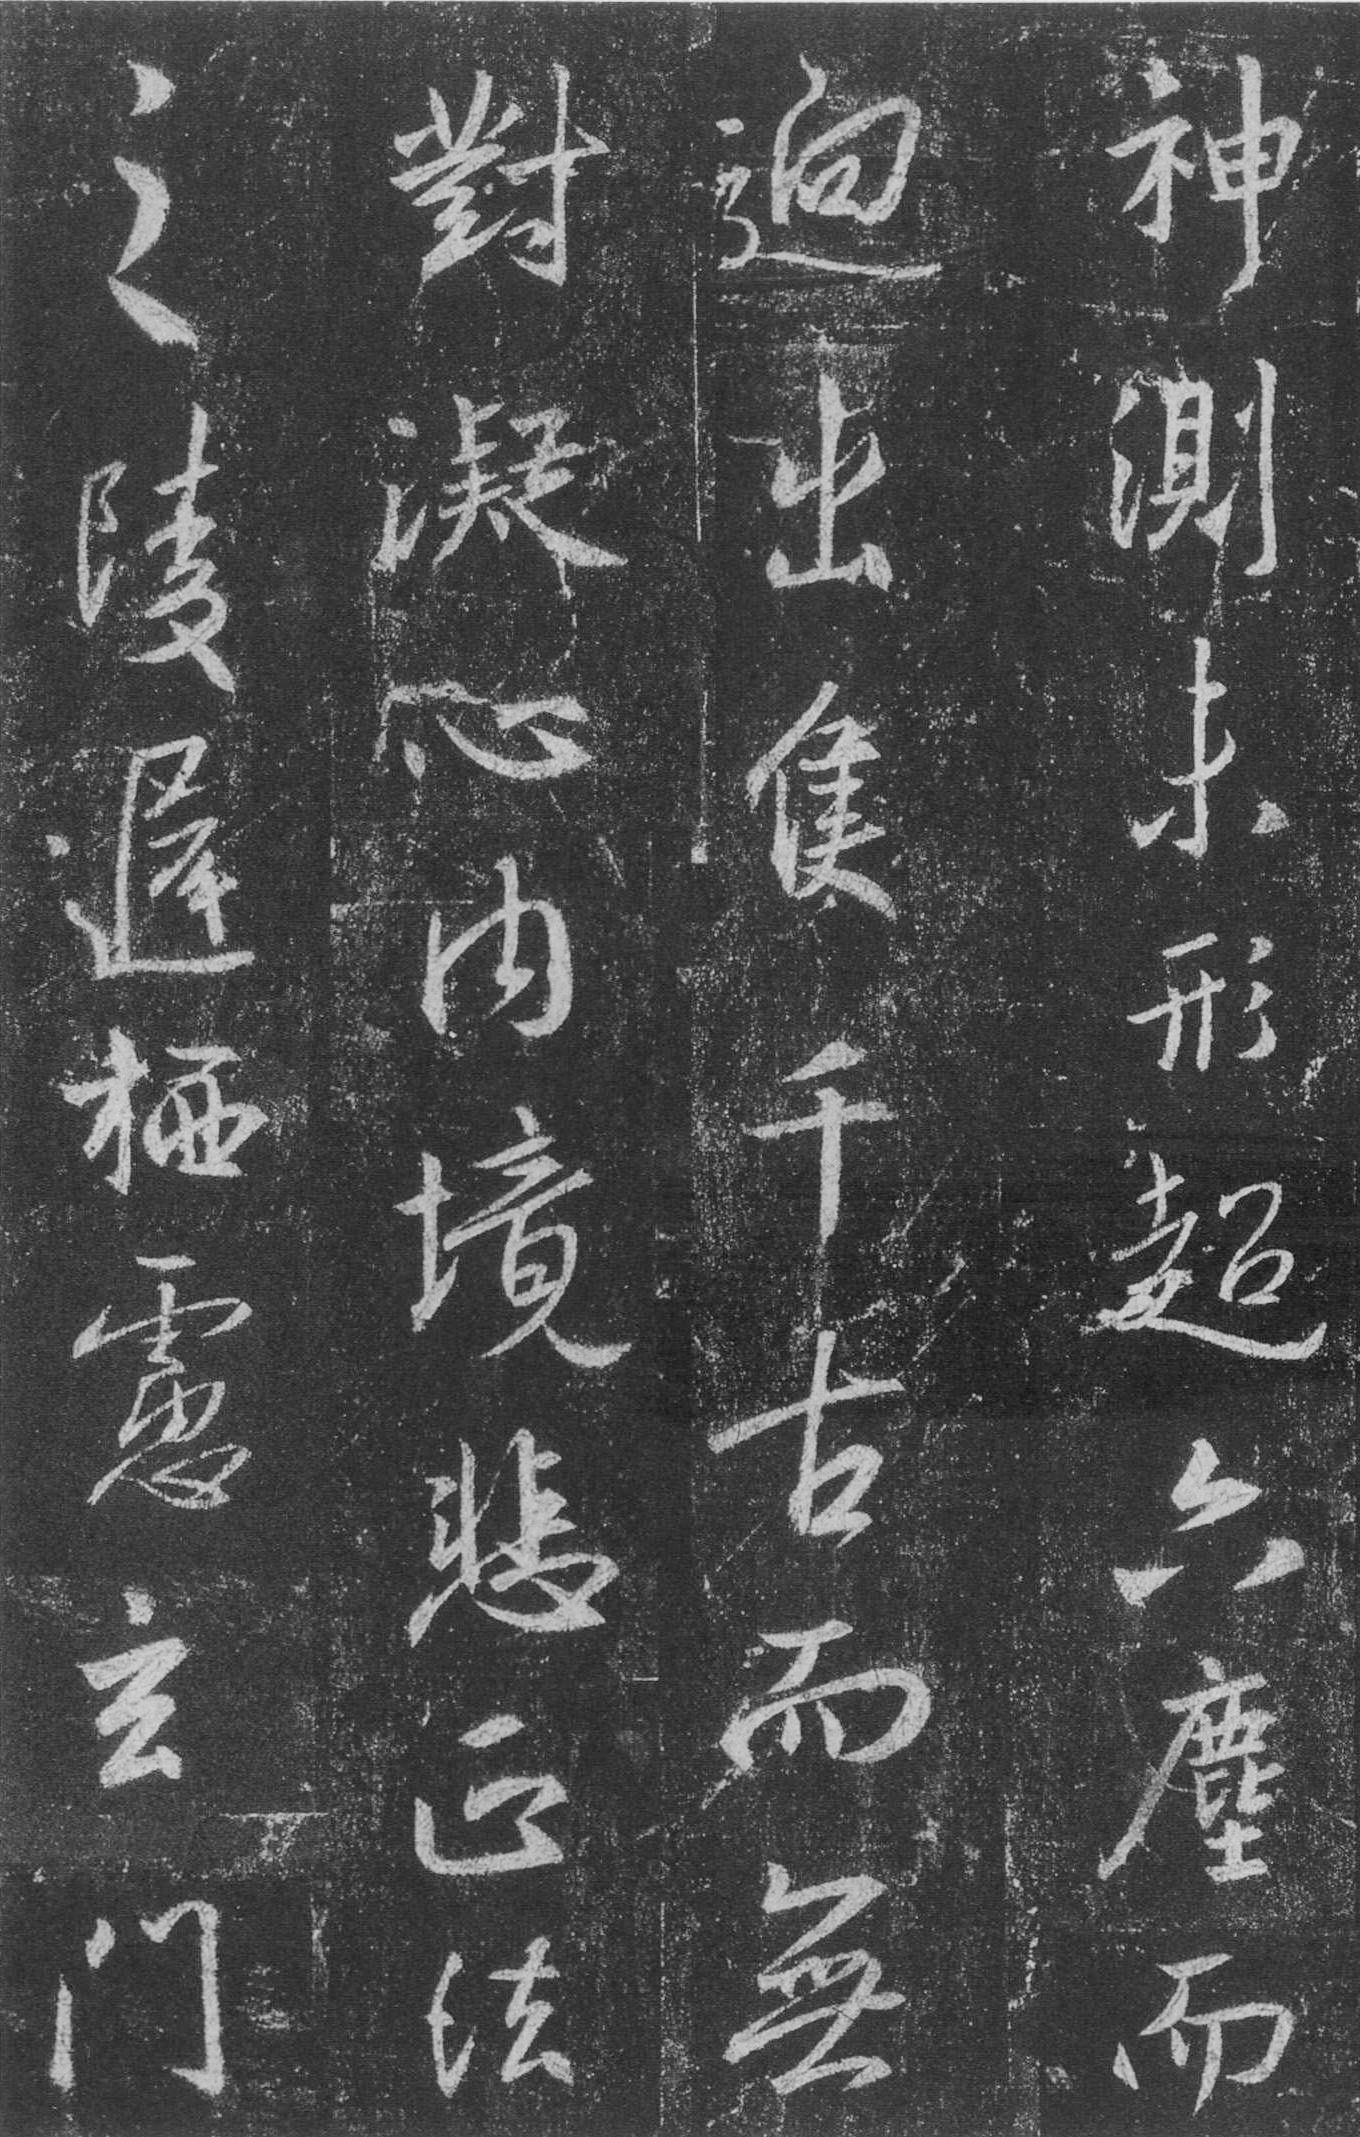 神測未形超六塵而
迥出隻千古而無
對凝心內境悲正法
之陵遲栖慮玄門